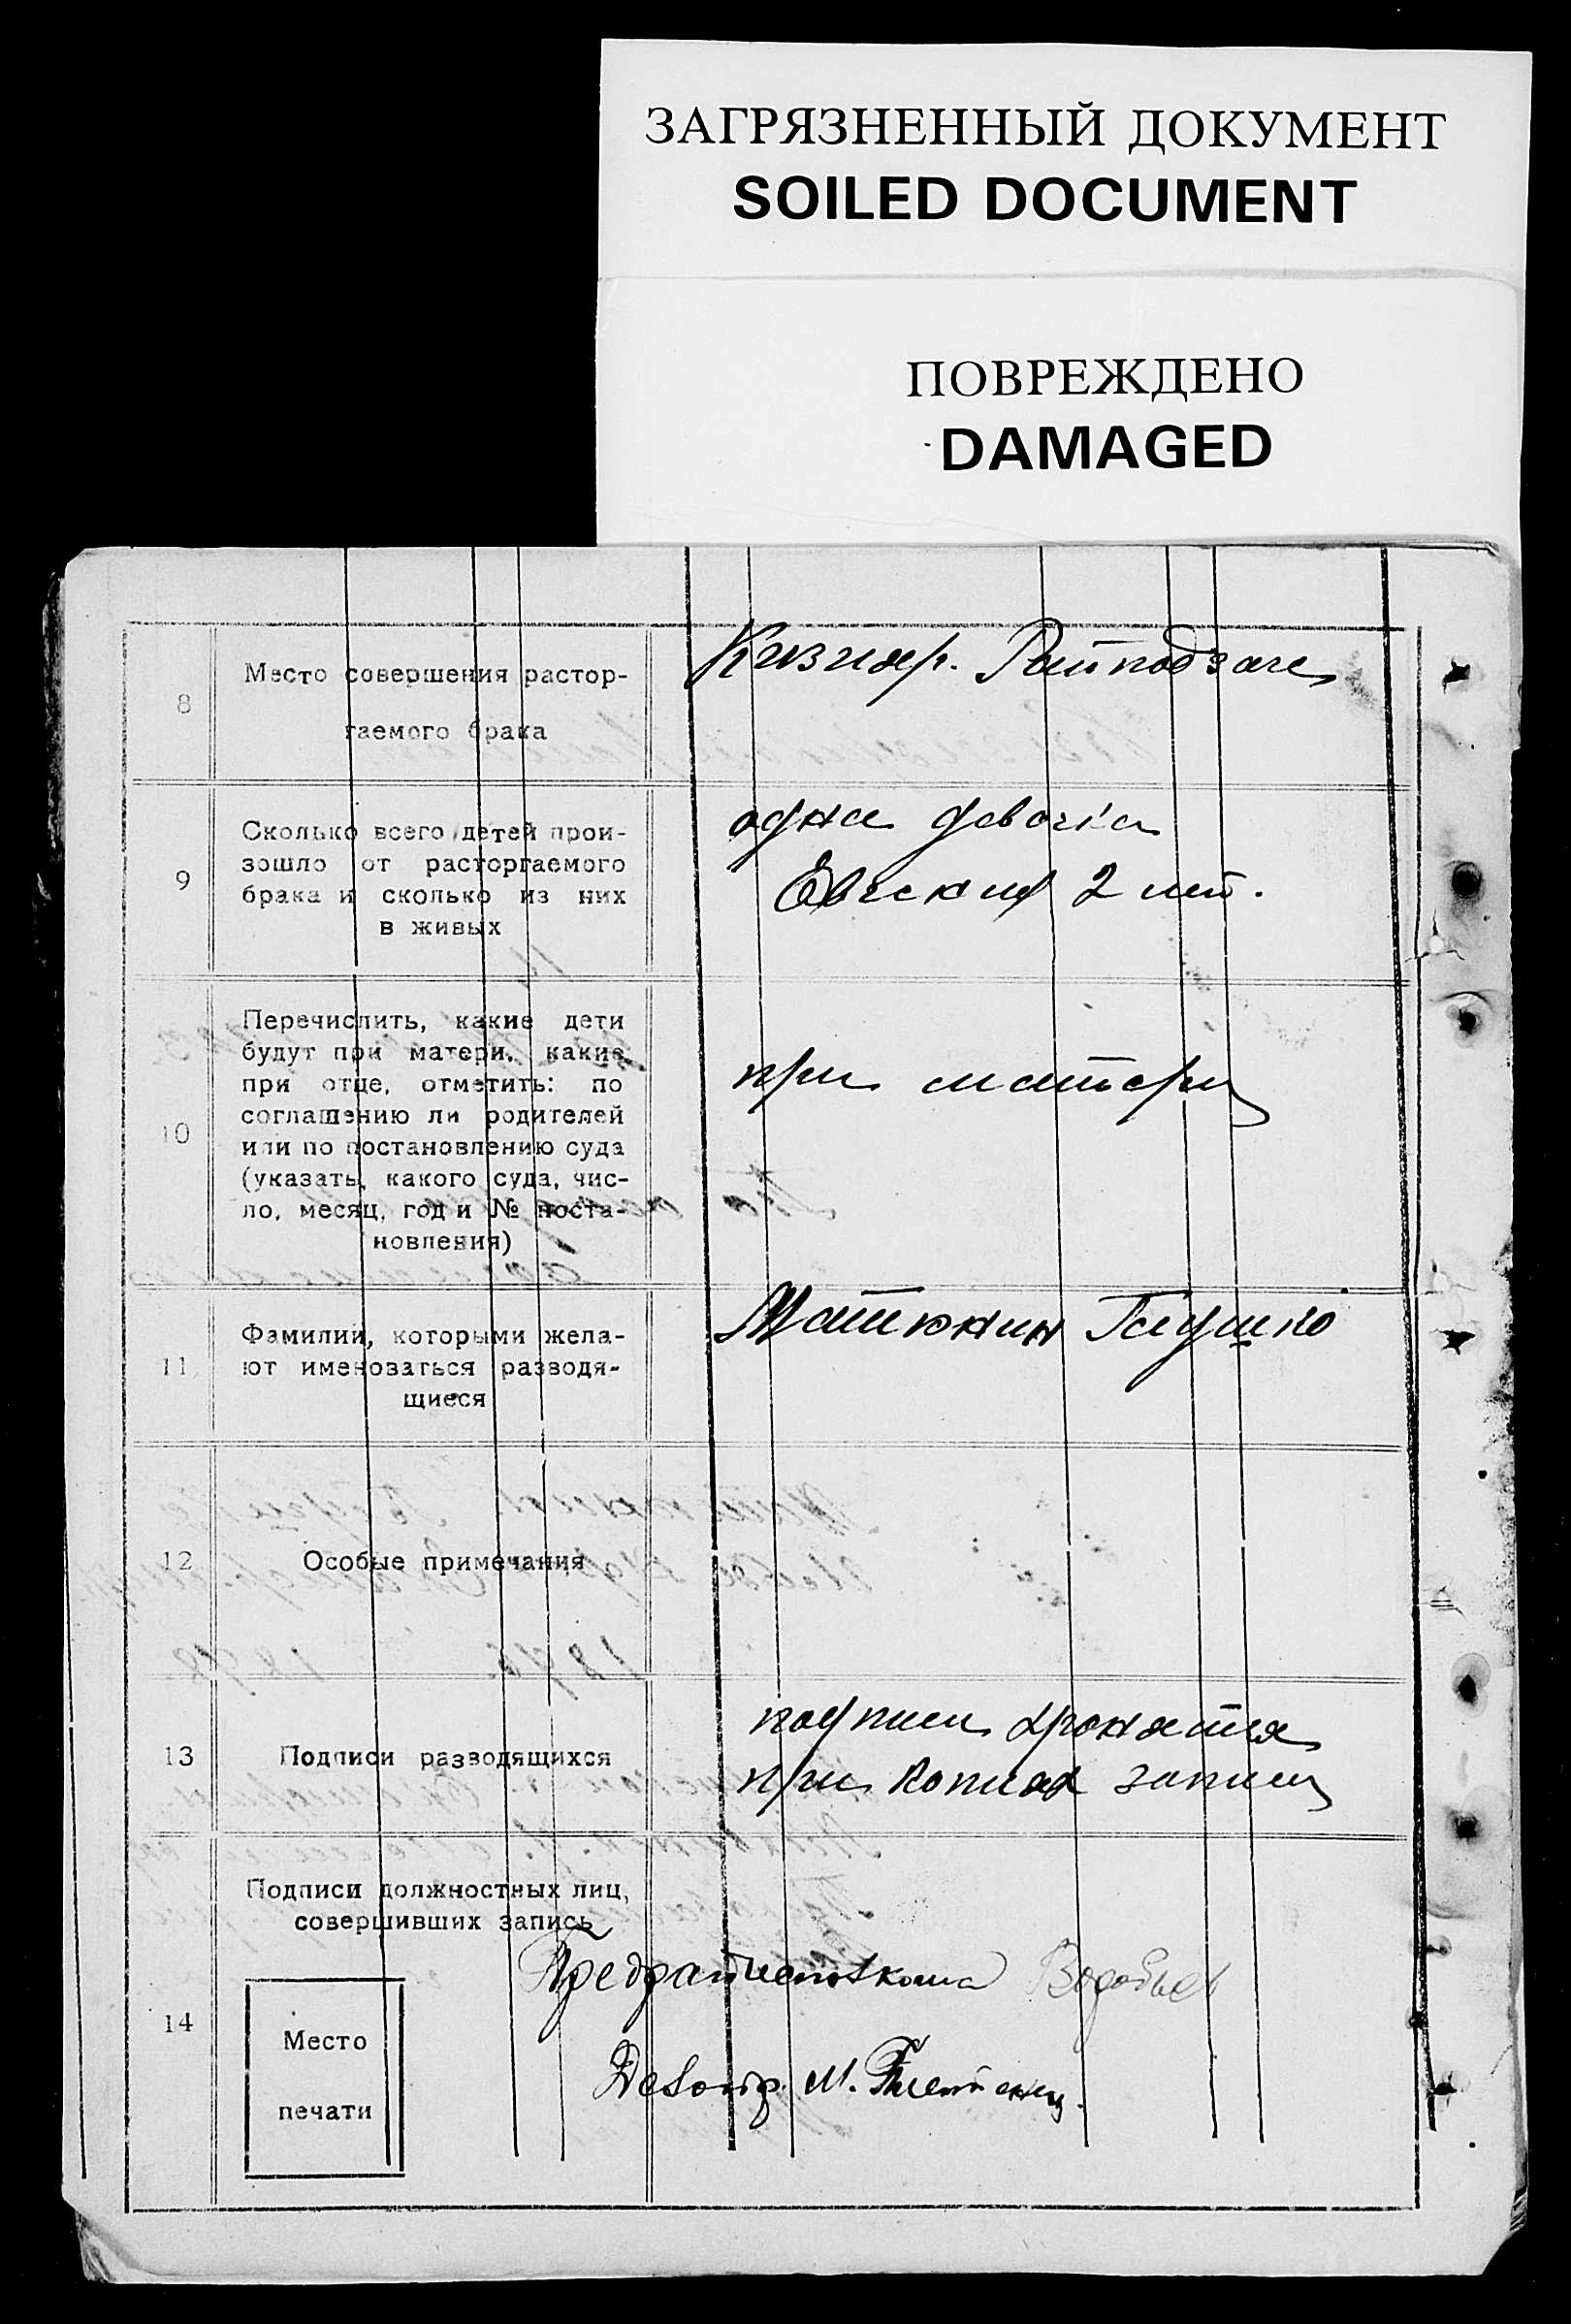 ЗАГРЯЗНЕННЫЙ ДОКУМЕНТ
SOILED DOCUMENT
ПОВРЕЖДЕНО
DAMAGED
8
Место совершения растор-
гаемого брака
Кизляр. Райподзаге
9
Сколько всего детей прои-
зошло от расторгаемого
брака и сколько из них
в живых
одна девочка
2 лет.
10
Перечислить, какие дети
будут при матери, какие
при отце, отметить: по
соглашению ли родителей
или по постановлению суда
(указать, какого суда, чис-
ло, месяц, год и № поста-
новления)
при матери
11
Фамилии, которыми жела-
ют именоваться разводя-
щиеся
Матюнин Галушко
12
Особые примечания
13
Подписи разводящихся
подписи хронятся
при копиях записи
Подписи должностных лиц,
совершивших запись
14
Место
печати
Предрайисполкома
Делопр. М.